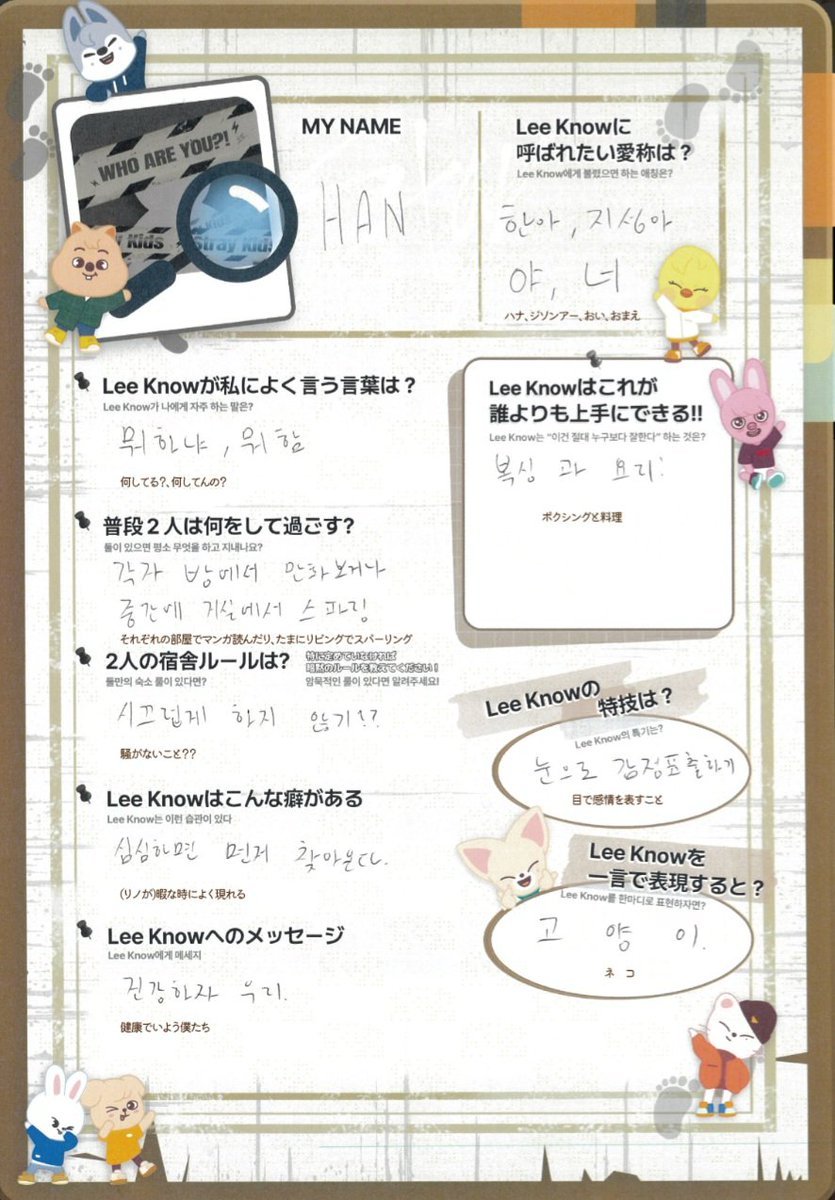 WHO ARE YOU?!
Stray Kids
MY NAME
HAN
Lee Knowに
呼ばれたい愛称は？
Lee Know에게 불렸으면 하는 애칭은?
한아, 지성아
야, 너
ハナ、ジソンアー、おい、おまえ
Lee Knowが私によく言う言葉は？
Lee Know가 나에게 자주 하는 말은?
뭐하냐, 뭐함
何してる?、何してんの?
Lee Knowはこれが
誰よりも上手にできる!!
Lee Know는 "이건 절대 누구보다 잘한다" 하는 것은?
복싱 과 요리!
ボクシングと料理
普段２人は何をして過ごす?
둘이 있으면 평소 무엇을 하고 지내나요?
각자 방에서 만화보거나
중간에 거실에서 스파링
それぞれの部屋でマンガ読んだり、たまにリビングでスパーリング
2人の宿舎ルールは?
特に定めていなければ
暗黙のルールを教えてください！
둘만의 숙소 룰이 있다면?
암묵적인 룰이 있다면 알려주세요!
시끄럽게 하지 않기!?
騒がないこと??
Lee Knowの
特技は？
Lee Know의 특기는?
눈으로 감정표출하기
目で感情を表すこと
Lee Knowはこんな癖がある
Lee Know는 이런 습관이 있다
심심하면 먼저 찾아온다.
(リノが)暇な時によく現れる
Lee Knowを
一言で表現すると？
Lee Know를 한마디로 표현하자면?
고 양 이.
ネコ
Lee Knowへのメッセージ
Lee Know에게 메세지
건강하자 우리.
健康でいよう僕たち